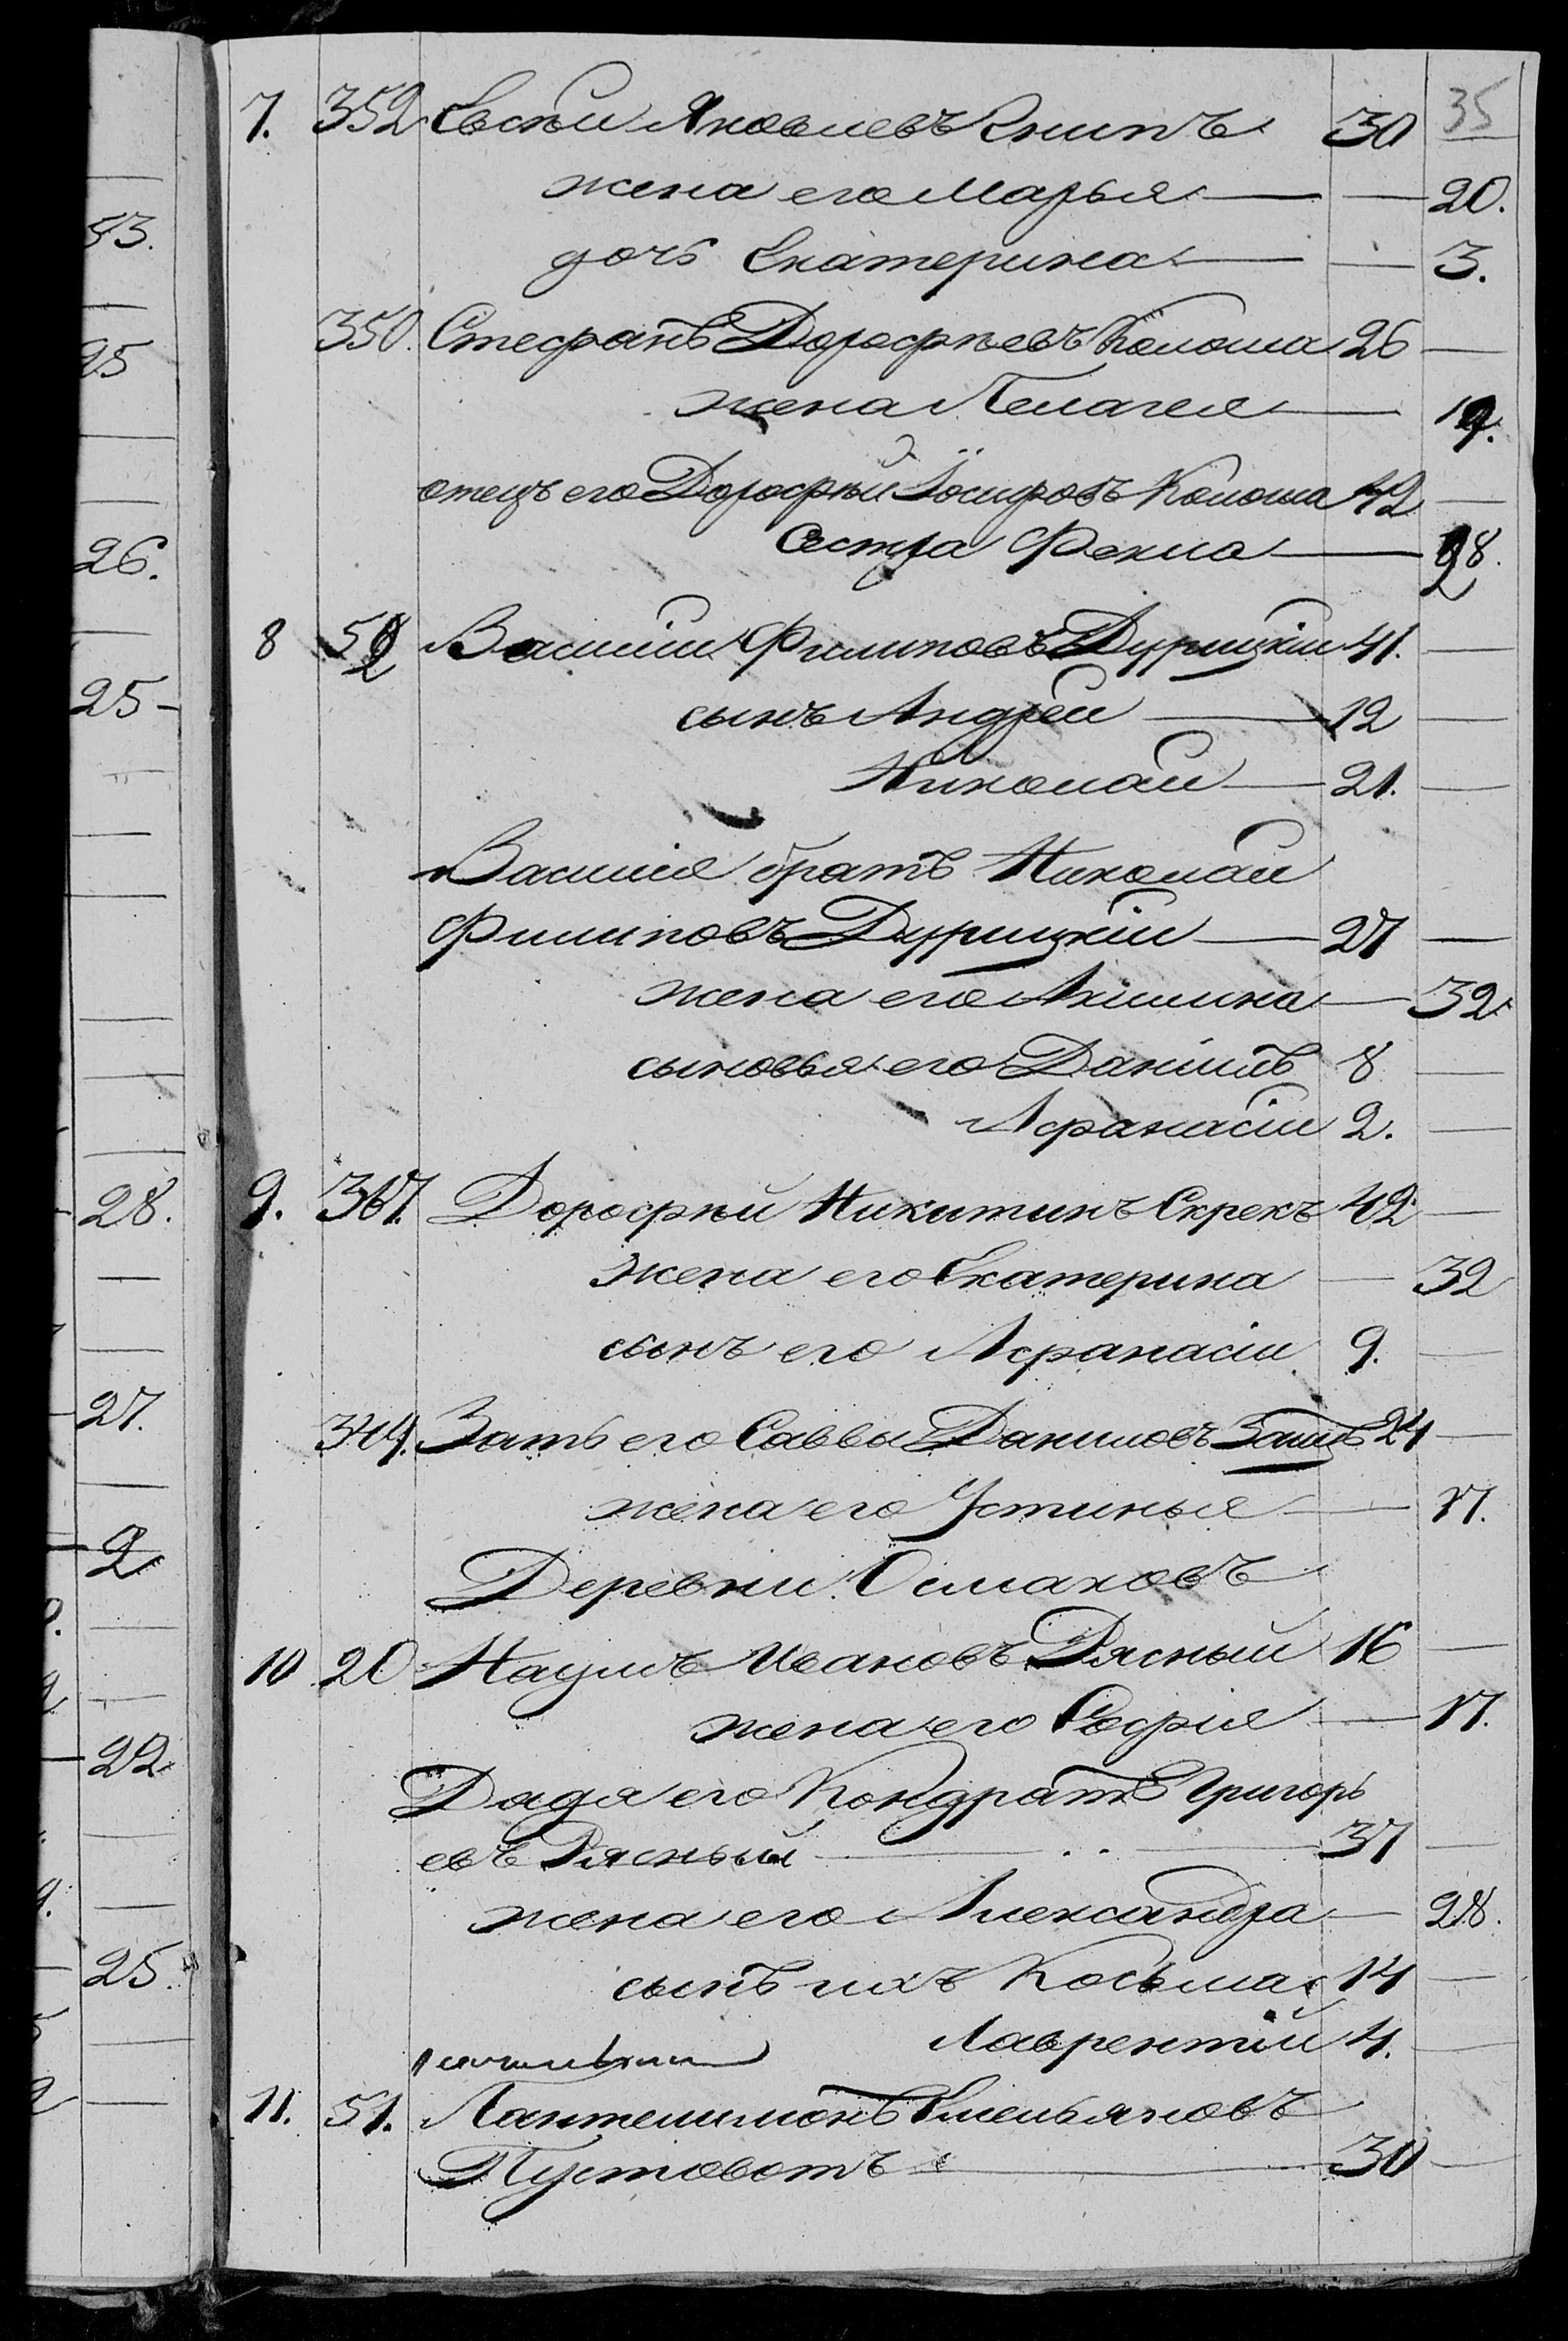 35
7. 352 Евсѣй Яковлевъ Книшъ 30
жена его Марья — — 20.
дочь Екатерина — — 3.
350. Стефанъ Дорофѣевъ Колоша 26 —
жена Пелагея — 19.
отецъ его Дорофѣй Іосифовъ Колоша 42 —
Сестра Фекла — 28.
8 52 Василій Филиповъ Дурицкій 41. —
сынъ Андрей — 12 —
Николай — 21. —
Василія братъ Николай
Филиповъ Дурицкій — 27 —
жена его Акилина — 32
сыновья его Даніилъ 8 —
Афанасій 2. —
9. 367. Дорофѣй Никитинъ Скрекъ 42 —
жена его Екатерина — 32
сынъ его Афанасій 9. —
344. Зать его Савва Даниловъ Заецъ 24 —
жена его Устинья — 17.
Деревни Осмаковъ
10 20 Наумъ Ивановъ Рясный 16 —
жена его Софія — 17.
Дядя его Кондратъ Григорь
евъ Рясный — 37 —
жена его Александра — 28.
сынъ ихъ Косьма 14 —
Лаврентій 4. —
11. 51. Пантелимонъ Емельяновъ
Пустовотъ — 30 —
53.
95
26.
25 -
28.
27.
2
22
25.